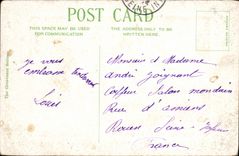 POST CARD
THIS SPACE MAY BE USED
FOR COMMUNICATION
THE ADDRESS ONLY TO BE
WRITTEN HERE
je vous
embrasse tendrement
Loïs
Monsieur et Madame
André Joignant
Coiffeur Salon mondain
Rue d'amiens
Rouen Seine Infre
France